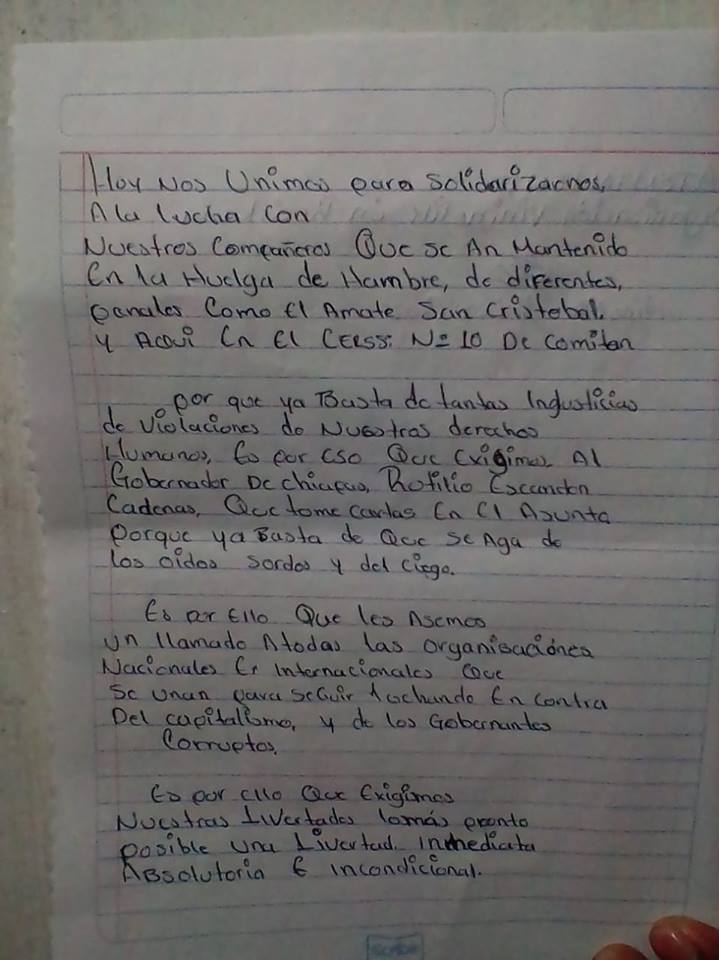 Hoy Nos Unimos para Solidarizarnos,
A la lucha Con
Nuestros Compañeros Que se An Mantenido
En la Huelga de Hambre, de diferentes,
penales Como El Amate San Cristobal.
y Aqui En El CERSS: Nº 10 De Comitan
por que ya Basta de tantas Ingusticias
de Violaciones de Nuestros derechos
Humanos, Es por eso Que Exigimos Al
Gobernador De chiapas, Rotilio Escandon
Cadenas, Que tome cartas En El Asunto
porque ya Basta de Que se Aga de
los oidos sordos y del Ciego.
Es por Ello Que les Asemos
un llamado A todas las organisaciónes
Nacionales E Internacionales Que
Se unan para seguir luchando En contra
Del capitalismo, y de los Gobernantes
Corruptos.
Es por ello Que Exigimos
Nuestras Livertades lomás pronto
posible una Livertad. Inmediata
Absolutoria E incondicional.
Scribe